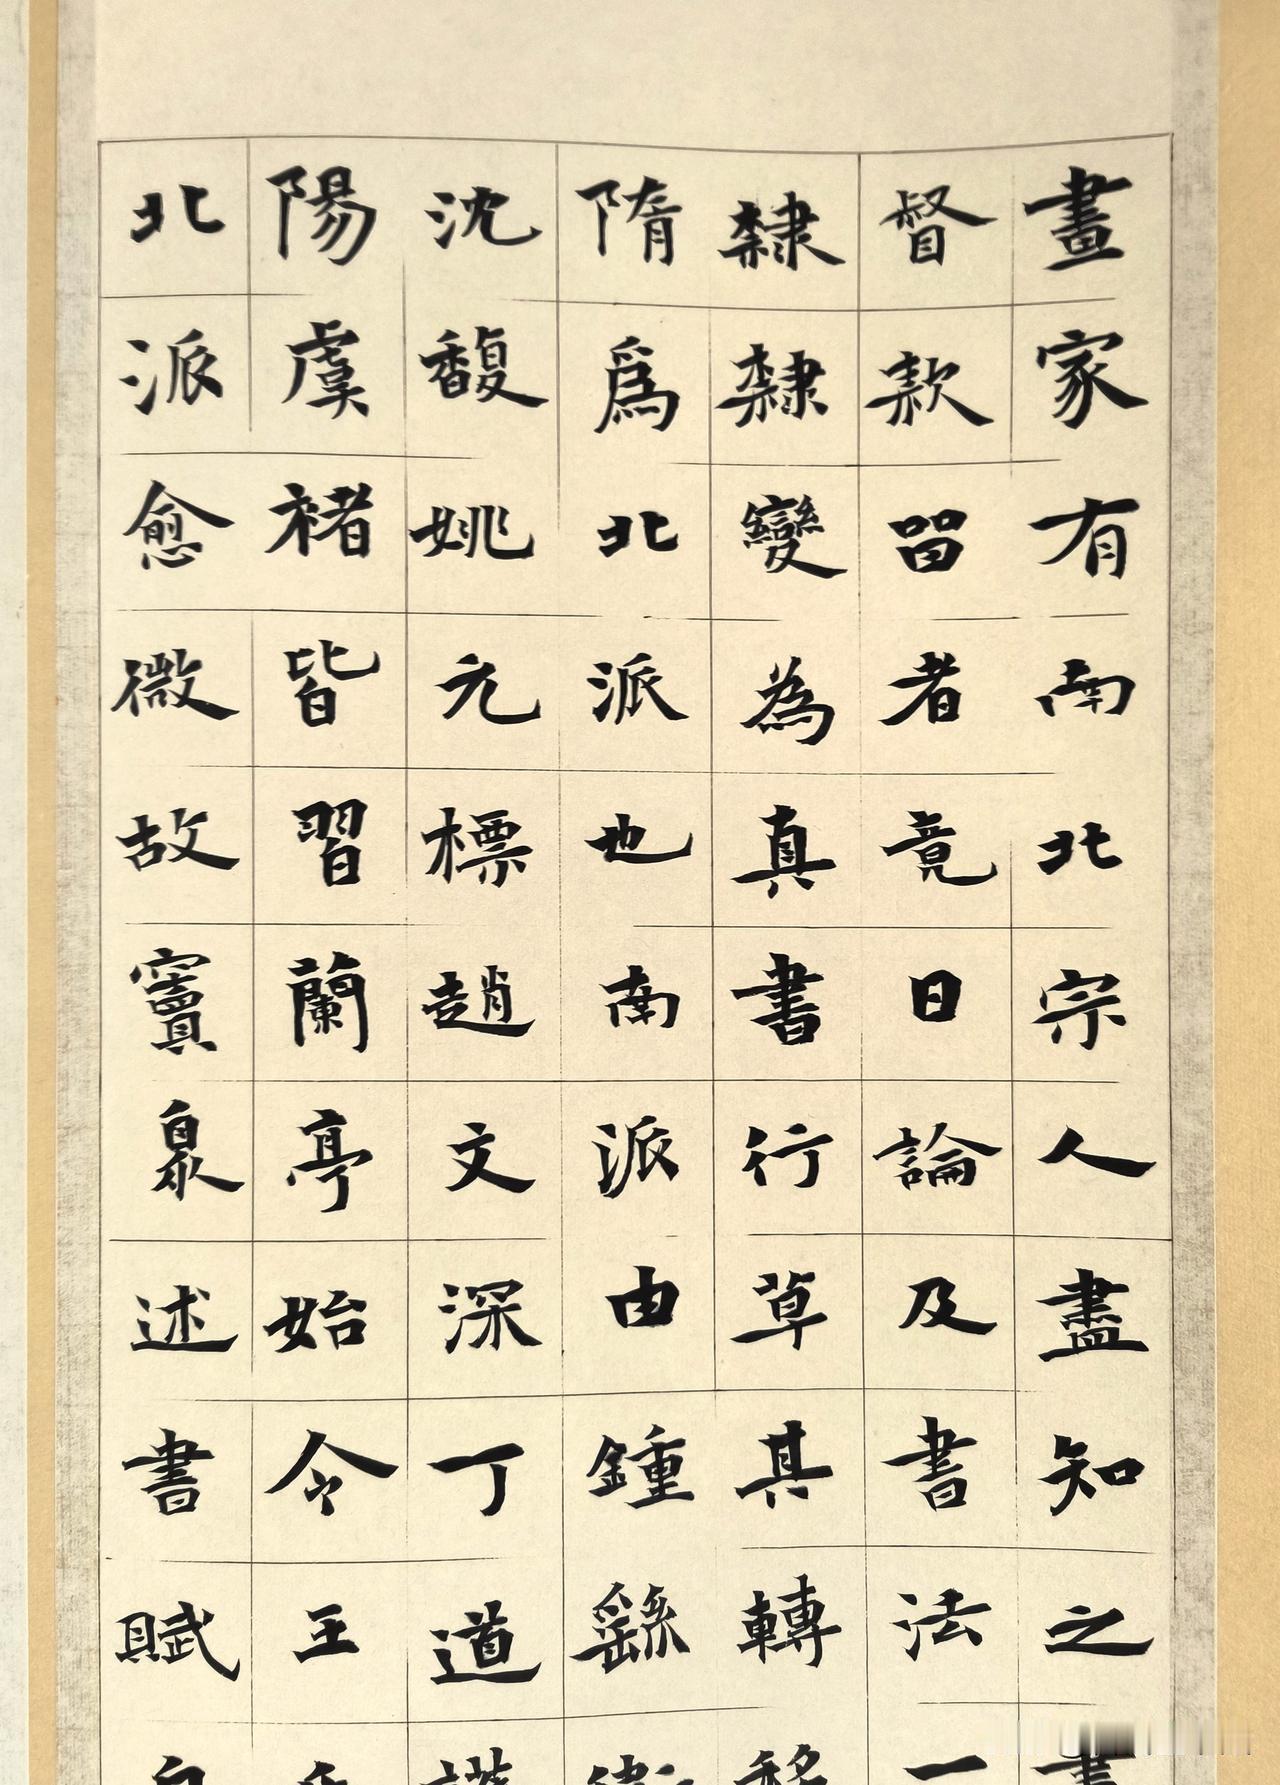 畫家有南北宗人盡知之書
督款畱者竟日論及書法一
隸隸變為真書行草其轉移
隋爲北派也南派由鍾繇衛
沈馥姚元標趙文深丁道護
陽虞褚皆習蘭亭始令王氏
北派愈微故竇臮述書賦自